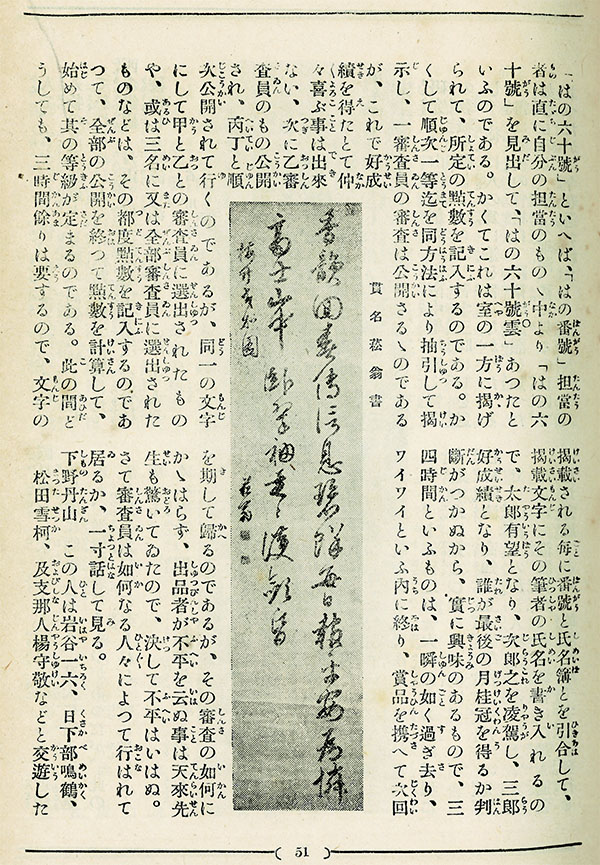 「はの六十號」といへば、「はの番號」擔當の
者は直に自分の擔當のものゝ中より「はの六
十號」を見出して、「はの六十號雲」あつたと
いふのである。かくてこれは室の一方に揭げ
られて、所定の點數を記入するのである。か
くして順次一等迄を同方法により抽引して揭
示し、一審査員の審査は公開さるゝのである
が、これで好成
績を得たとて仲
々喜ぶ事は出來
ない、次に乙審
査員のもの公開
され、丙丁と順
次公開されて行くのであるが、同一の文字
にして甲と乙との審査員に選出されたもの
や、或は三名に又は全部審査員に選出された
ものなどは、その都度點數を記入するのであ
つて、全部の公開を終つて點數を計算して、
始めて其の等級が定まるのである。此の間ど
うしても、三時間餘りは要するので、文字の
貫名菘翁書
揭載される每に番號と氏名簿とを引合して、
揭載文字にその筆者の氏名を書き入れるの
で、太郎有望となり、次郎之を凌駕し、三郎
好成績となり、誰が最後の月桂冠を得るか判
斷がつかぬから、實に興味のあるもので、三
四時間といふものは、一瞬の如く過ぎ去り、
ワイワイといふ內に終り、賞品を携へて次回
を期して歸るのであるが、その審査の如何に
かゝはらず、出品者が不平を云ぬ事は天來先
生も驚いてゐたので、決して不平はいはぬ。
さて審査員は如何なる人々によつて行はれて
居るか、一寸話して見る。
下野丹山 この人は岩谷一六、日下部鳴鶴、
松田雪柯、及支那人楊守敬などと交遊した
( 51 )